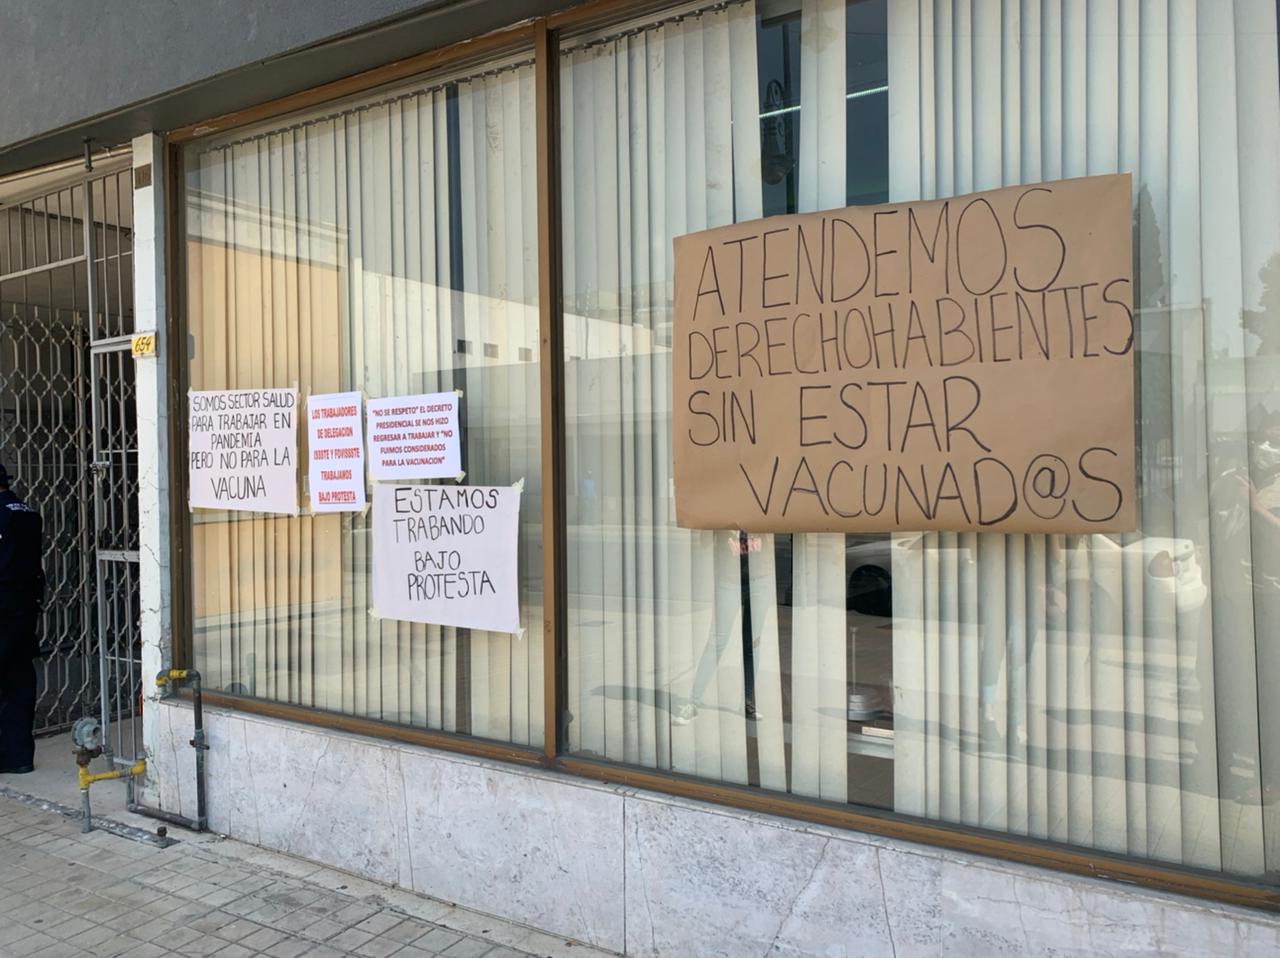 654
SOMOS SECTOR SALUD
PARA TRABAJAR EN
PANDEMIA
PERO NO PARA LA
VACUNA
LOS TRABAJADORES
DE DELEGACION
ISSSTE Y FOVISSSTE
TRABAJAMOS
BAJO PROTESTA
"NO SE RESPETO" EL DECRETO
PRESIDENCIAL SE NOS HIZO
REGRESAR A TRABAJAR Y "NO
FUIMOS CONSIDERADOS
PARA LA VACUNACION"
ESTAMOS
TRABANDO
BAJO
PROTESTA
ATENDEMOS
DERECHOHABIENTES
SIN ESTAR
VACUNAD@S